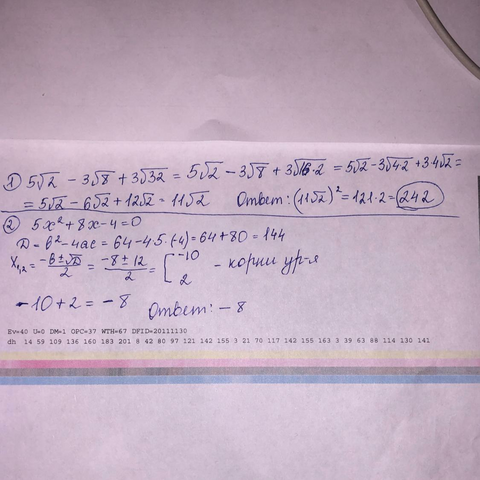 ① 5√2 - 3√8 + 3√32 = 5√2 - 3√8 + 3√16·2 = 5√2 - 3√4·2 + 3·4√2 =
= 5√2 - 6√2 + 12√2 = 11√2 Ответ: (11√2)² = 121·2 = 242
② 5x² + 8x - 4 = 0
D = b² - 4ac = 64 - 4·5·(-4) = 64 + 80 = 144
x₁,₂ = (-b ± √D)/2 = (-8 ± 12)/2 = [ -10 2 - корни ур-я
-10 + 2 = -8 Ответ: -8
Ev=40 U=0 DM=1 OPC=37 WTH=67 DFID=20111130
dh 14 59 109 136 160 183 201 8 42 80 97 121 142 155 3 21 70 117 142 155 163 3 39 63 88 114 130 141